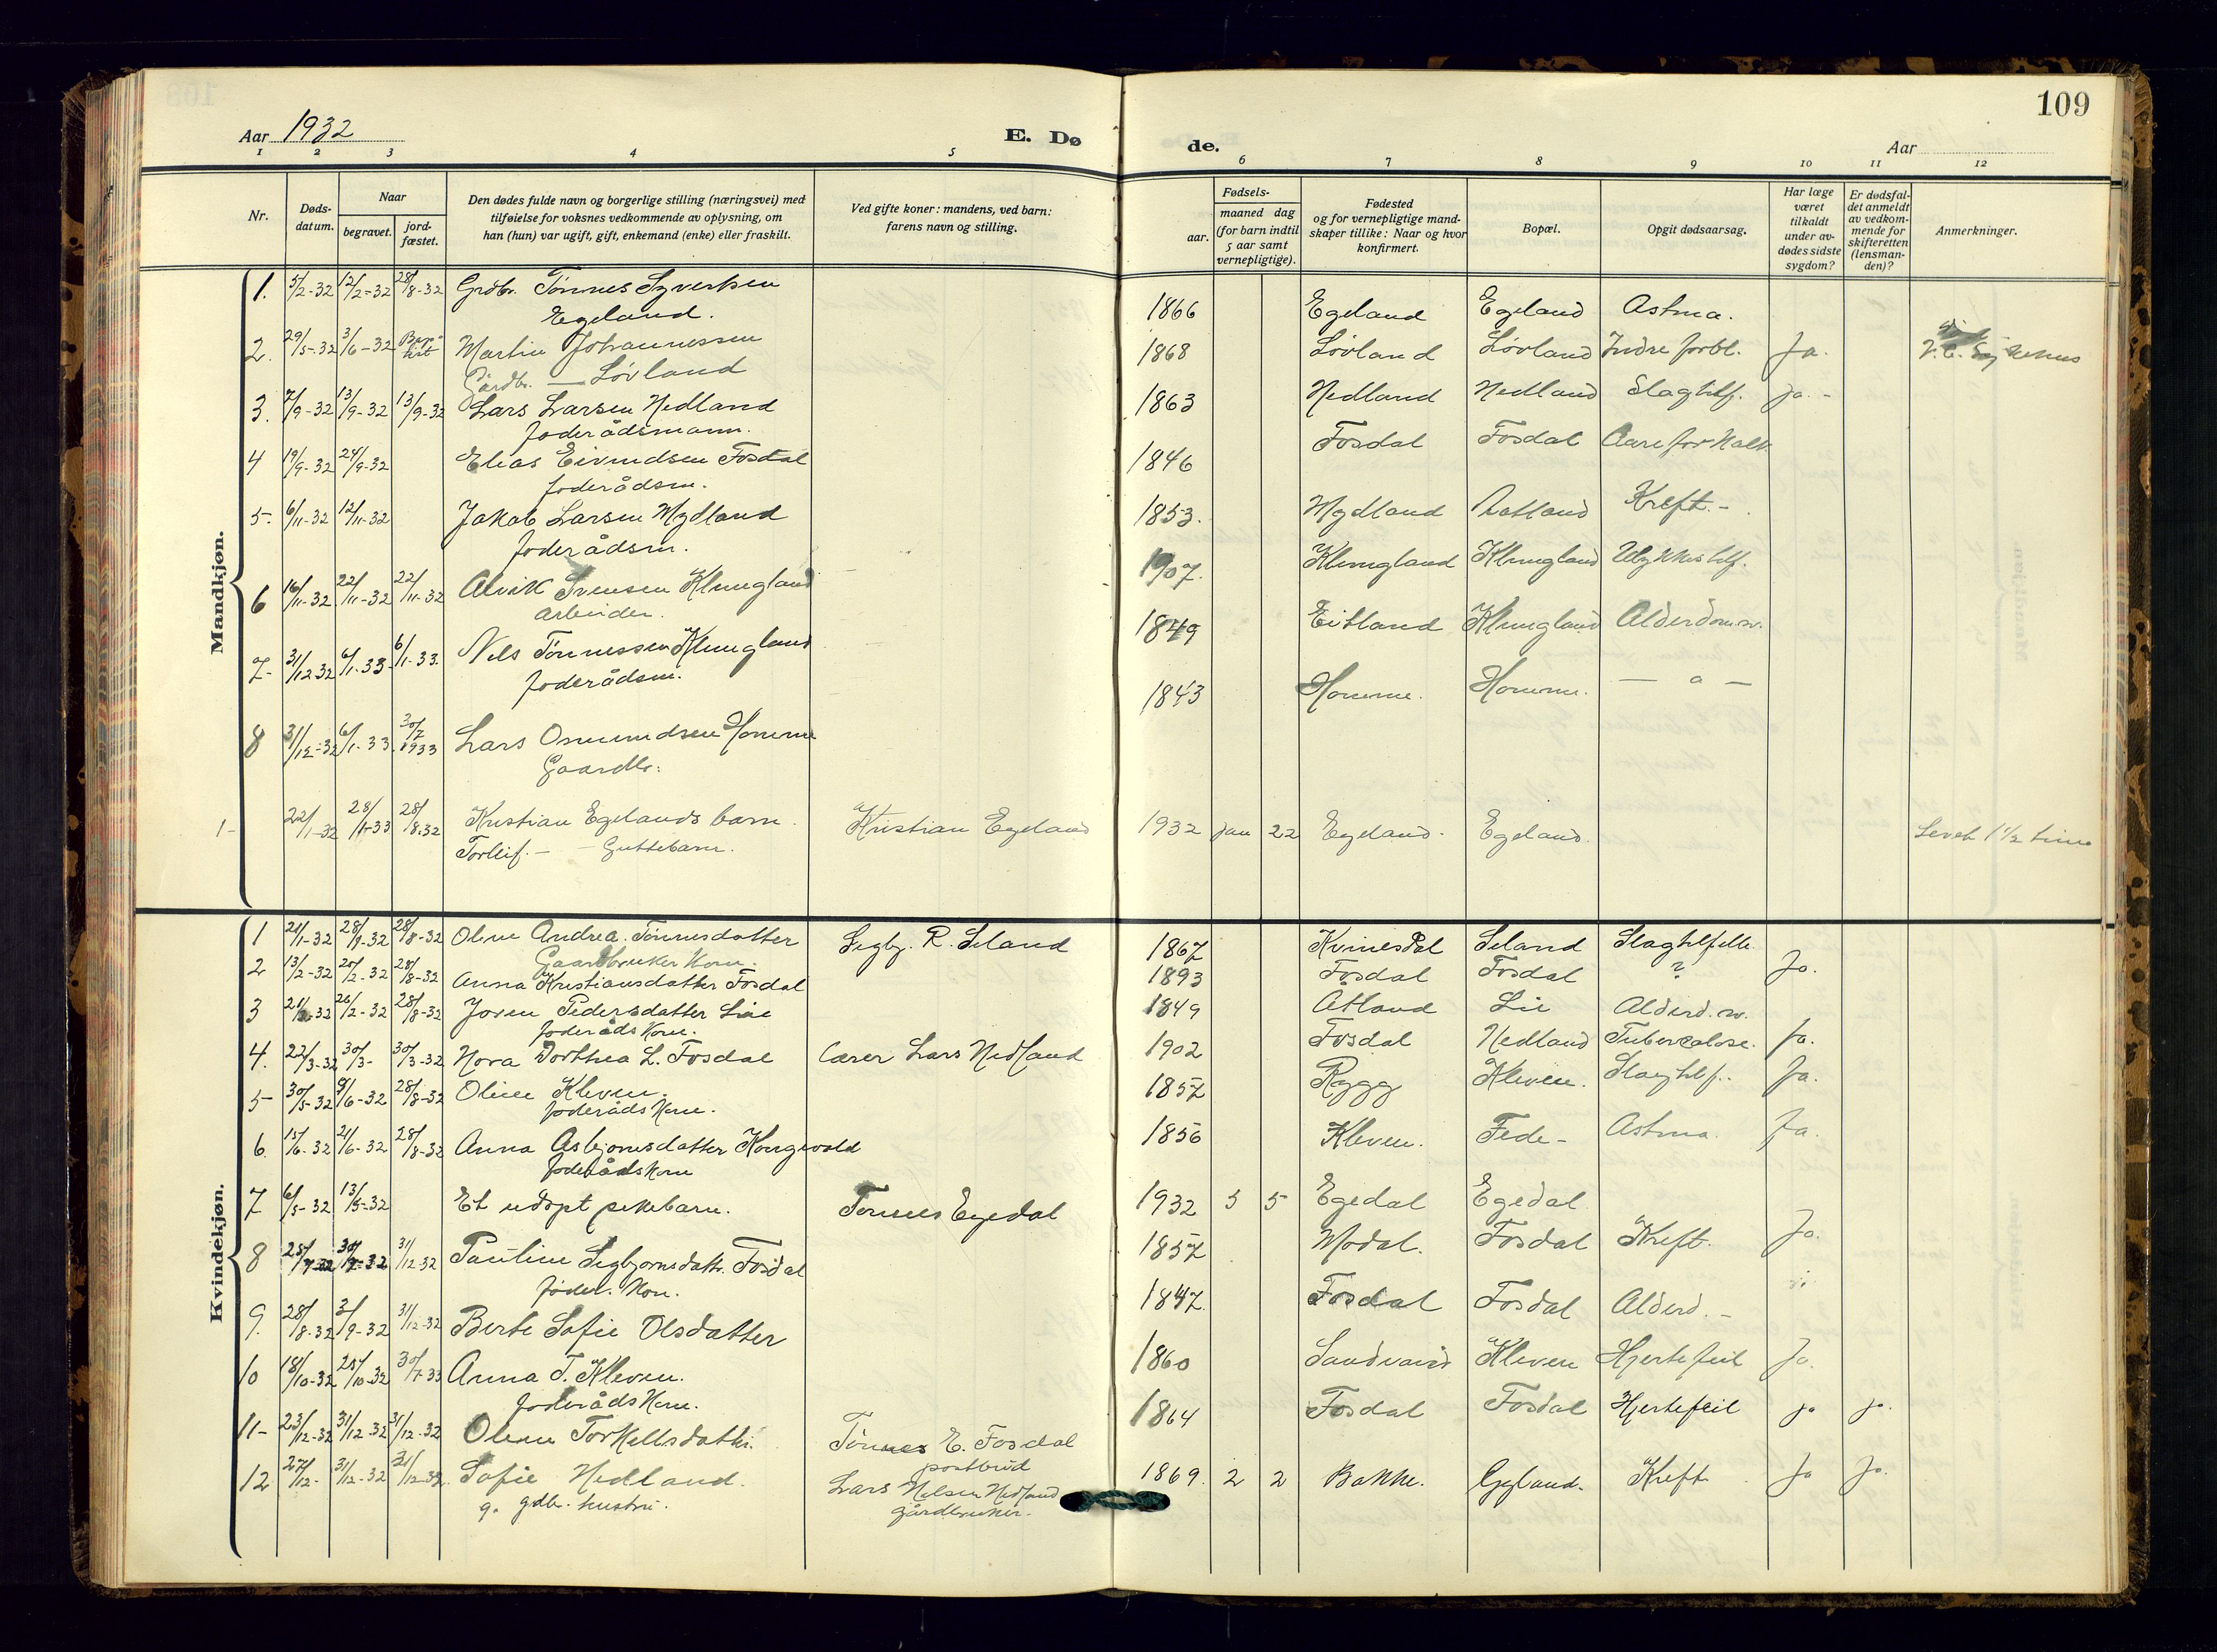 109
Aar 1932
E. Dø
de.
Aar
1 2 3 4 5 6 7 8 9 10 11 12
Nr.
Døds-
datum.
Naar
begravet.
jord-
fæstet.
Den dødes fulde navn og borgerlige stilling (næringsvei) med
tilføielse for voksnes vedkommende av oplysning, om
han (hun) var ugift, gift, enkemand (enke) eller fraskilt.
Ved gifte koner: mandens, ved barn:
farens navn og stilling.
Fødsels-
aar.
maaned dag
(for barn indtil
5 aar samt
vernepligtige).
Fødested
og for vernepligtige mand-
skaper tillike: Naar og hvor
konfirmert.
Bopæl.
Opgit dødsaarsag.
Har læge
været
tilkaldt
under av-
dødes sidste
sygdom?
Er dødsfal-
det anmeldt
av vedkom-
mende for
skifteretten
(lensman-
den)?
Anmerkninger.
Mandkjøn.
1. 5/2-32 12/2-32 28/8-32 Grdbr. Tønnes Syvertsen 1866 Egeland Egeland Astma.
Egeland.
2. 29/5-32 3/6-32 Martin Johannessen 1868 Løvland Løvland Indre forbl. Ja. Sykehus
Gårdbr. — Løvland
3. 7/9-32 13/9-32 13/9-32 Lars Larsen Nedland 1863 Nedland Nedland Slagtilf. ja.-
Foderådsmann.
4 19/9-32 24/9-32 Elias Eivindsen Fosdal 1846 Fosdal Fosdal Aareforkalk.
foderådsm.
5. 6/11-32 12/11-32 Jakob Larsen Mydland 1853. Mydland Aatland Kreft.-
foderådsm.
6 16/11-32 22/11-32 22/11-32 Alvik Svensen Klungland 1907. Klungland Klungland Ulykkestilf.
arbeider.
7- 31/12-32 6/1-33 6/1-33. Nils Tønnessen Klungland 1849 Eitland Klungland Alderdomsv.
foderådsm.
8 31/12-32 6/1-33. 30/7 1933 Lars Osmundsen Homme 1843 Homme. Homme. — " —
Gaardbr.
1- 22/1-32 28/1-33 28/8-32 Kristian Egelands barn. Kristian Egeland 1932 jan 22 Egeland. Egeland. Levet 1 1/2 time
Torleif.- - Guttebarn.
Kvindekjøn.
1 21/1-32 28/1-32 28/8-32 Oline Andrea Tønnesdatter Segbj. R. Seland 1867 Kvinesdal Seland Slagtilfelle
Gaardbruker Kone.
2 13/2-32 20/2-32 28/8-32 Anna Kristiansdatter Fosdal 1893 Fosdal Fosdal ? Ja.
3 21/2-32 26/2-32 28/8-32 Joren Pedersdatter Lie 1849 Åtland Lie Alderd.sv.
foderådskone.
4. 22/3-32 30/3- 30/3-32 Nora Dorthea L. Fosdal Lærer Lars Nedland 1902 Fosdal Nedland Tuberculose. Ja.
5- 30/5-32 9/6-32 28/8-32 Oline Kleven. 1857 Rygg Kleven. Slagtilf. Ja.
foderådskone.
6. 15/6-32 21/6-32 28/8-32 Anna Asbjørnsdatter Kongevold 1856 Kleven. Fede- Astma. Ja.
foderådskone
7 6/5-32 13/5-32 Et udøpt pikebarn. Tønnes Egedal 1932 5 5 Egedal Egedal
8 25/7-32 30/7-32 31/12-32 Pauline Segbjørnsdatt. Fosdal 1857 Modal. Fosdal Kreft. Ja.
foder. kone.
9. 28/8-32 3/9-32 31/12-32 Berte Sofie Olsdatter 1847. Fosdal Fosdal Alderd.-
10 18/10-32 25/10-32 30/7-33 Anna T. Kleven. 1860 Sandvand Kleven Hjertefeil Ja.
foderådskone.
11- 23/12-32 31/12-32 31/12-32 Olene Torkellsdatter. Tønnes E. Fosdal 1864 Fosdal Fosdal Hjertefeil ja ja.
postbud
12 27/12- 31/12-32 31/12-32 Sofie Nedland. Lars Nilsen Nedland 1869. 2 2 Bakke. Gyland. Kreft Ja Ja.
g. gdbr. hustru. gårdbruker.